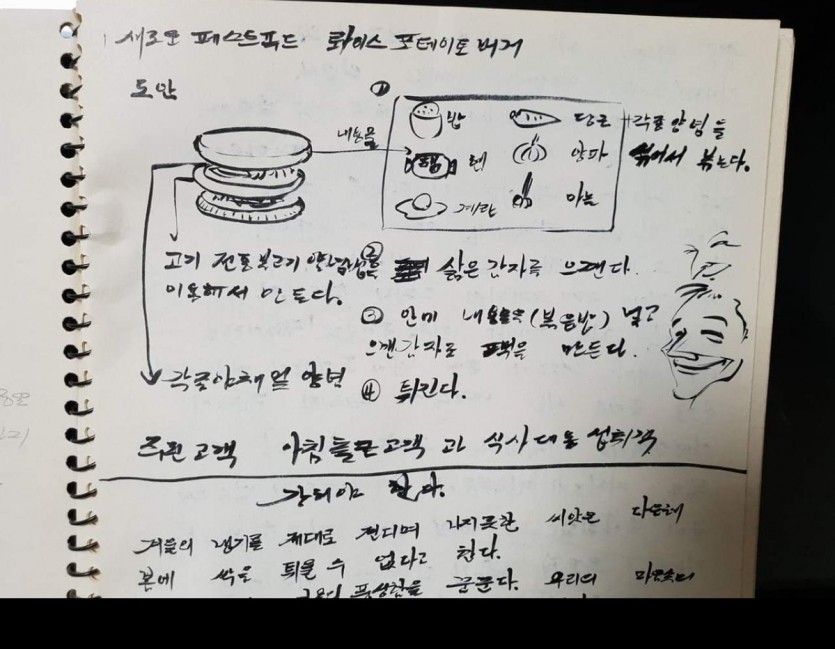 새로운 패스트푸드 롸이스 포테이토 버거
도안
①
내용물
밥 당근 +각종양념을
햄
햄 양파 볶아서 볶는다.
계란 마늘
고기 전통불고기 양념법을
이용해서 만든다.
② 삶은 감자를 으깬다.
③ 안에 내용물(볶음밥) 넣고
으깬감자로 만든다.
각종야채 및 양념
④ 튀긴다.
주된 고객 아침 고객 과 식사대용 섭취객
한다.
겨울의 냉기를 제대로 견디며 가지못한 씨앗은 다음해
봄에 싹을 틔울 수 없다고 한다.
꿈꾼다. 우리의